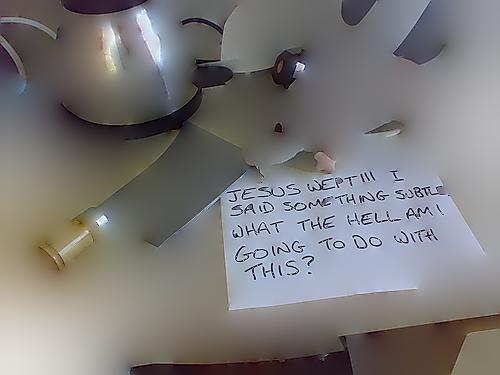 JESUS WEPT!!! I
SAID SOMETHING SUBTLE
WHAT THE HELL AM I
GOING TO DO WITH
THIS?